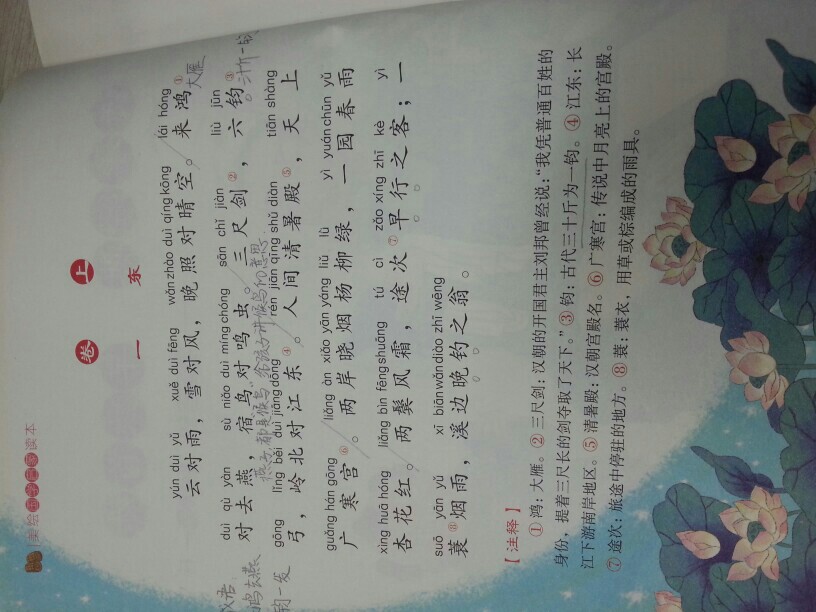 美绘读本
卷 上
一 东
yún duì yǔ xuě duì fēng wǎn zhào duì qíng kōng lái hóng
云对雨，雪对风，晚照对晴空。来鸿①
大雁
duì qù yàn sù niǎo duì míng chóng sān chǐ jiàn liù jūn
对去燕，宿鸟对鸣虫。三尺剑②，六钧③
gōng lǐng běi duì jiāng dōng rén jiān qīng shǔ diàn tiān shàng
弓，岭北对江东④。人间清暑殿⑤，天上
guǎng hán gōng liǎng àn xiǎo yān yáng liǔ lǜ yì yuán chūn yǔ
广寒宫⑥。两岸晓烟杨柳绿，一园春雨
xìng huā hóng liǎng bìn fēng shuāng tú cì zǎo xíng zhī kè yì
杏花红。两鬓风霜，途次⑦早行之客；一
suō yān yǔ xī biān wǎn diào zhī wēng
蓑⑧烟雨，溪边晚钓之翁。
【注释】
①鸿：大雁。②三尺剑：汉朝的开国君主刘邦曾经说：“我凭普通百姓的
身份，提着三尺长的剑夺取了天下。”③钧：古代三十斤为一钧。④江东：长
江下游南岸地区。⑤清暑殿：汉朝宫殿名。⑥广寒宫：传说中月亮上的宫殿。
⑦途次：旅途中停驻的地方。⑧蓑：蓑衣，用草或棕编成的雨具。